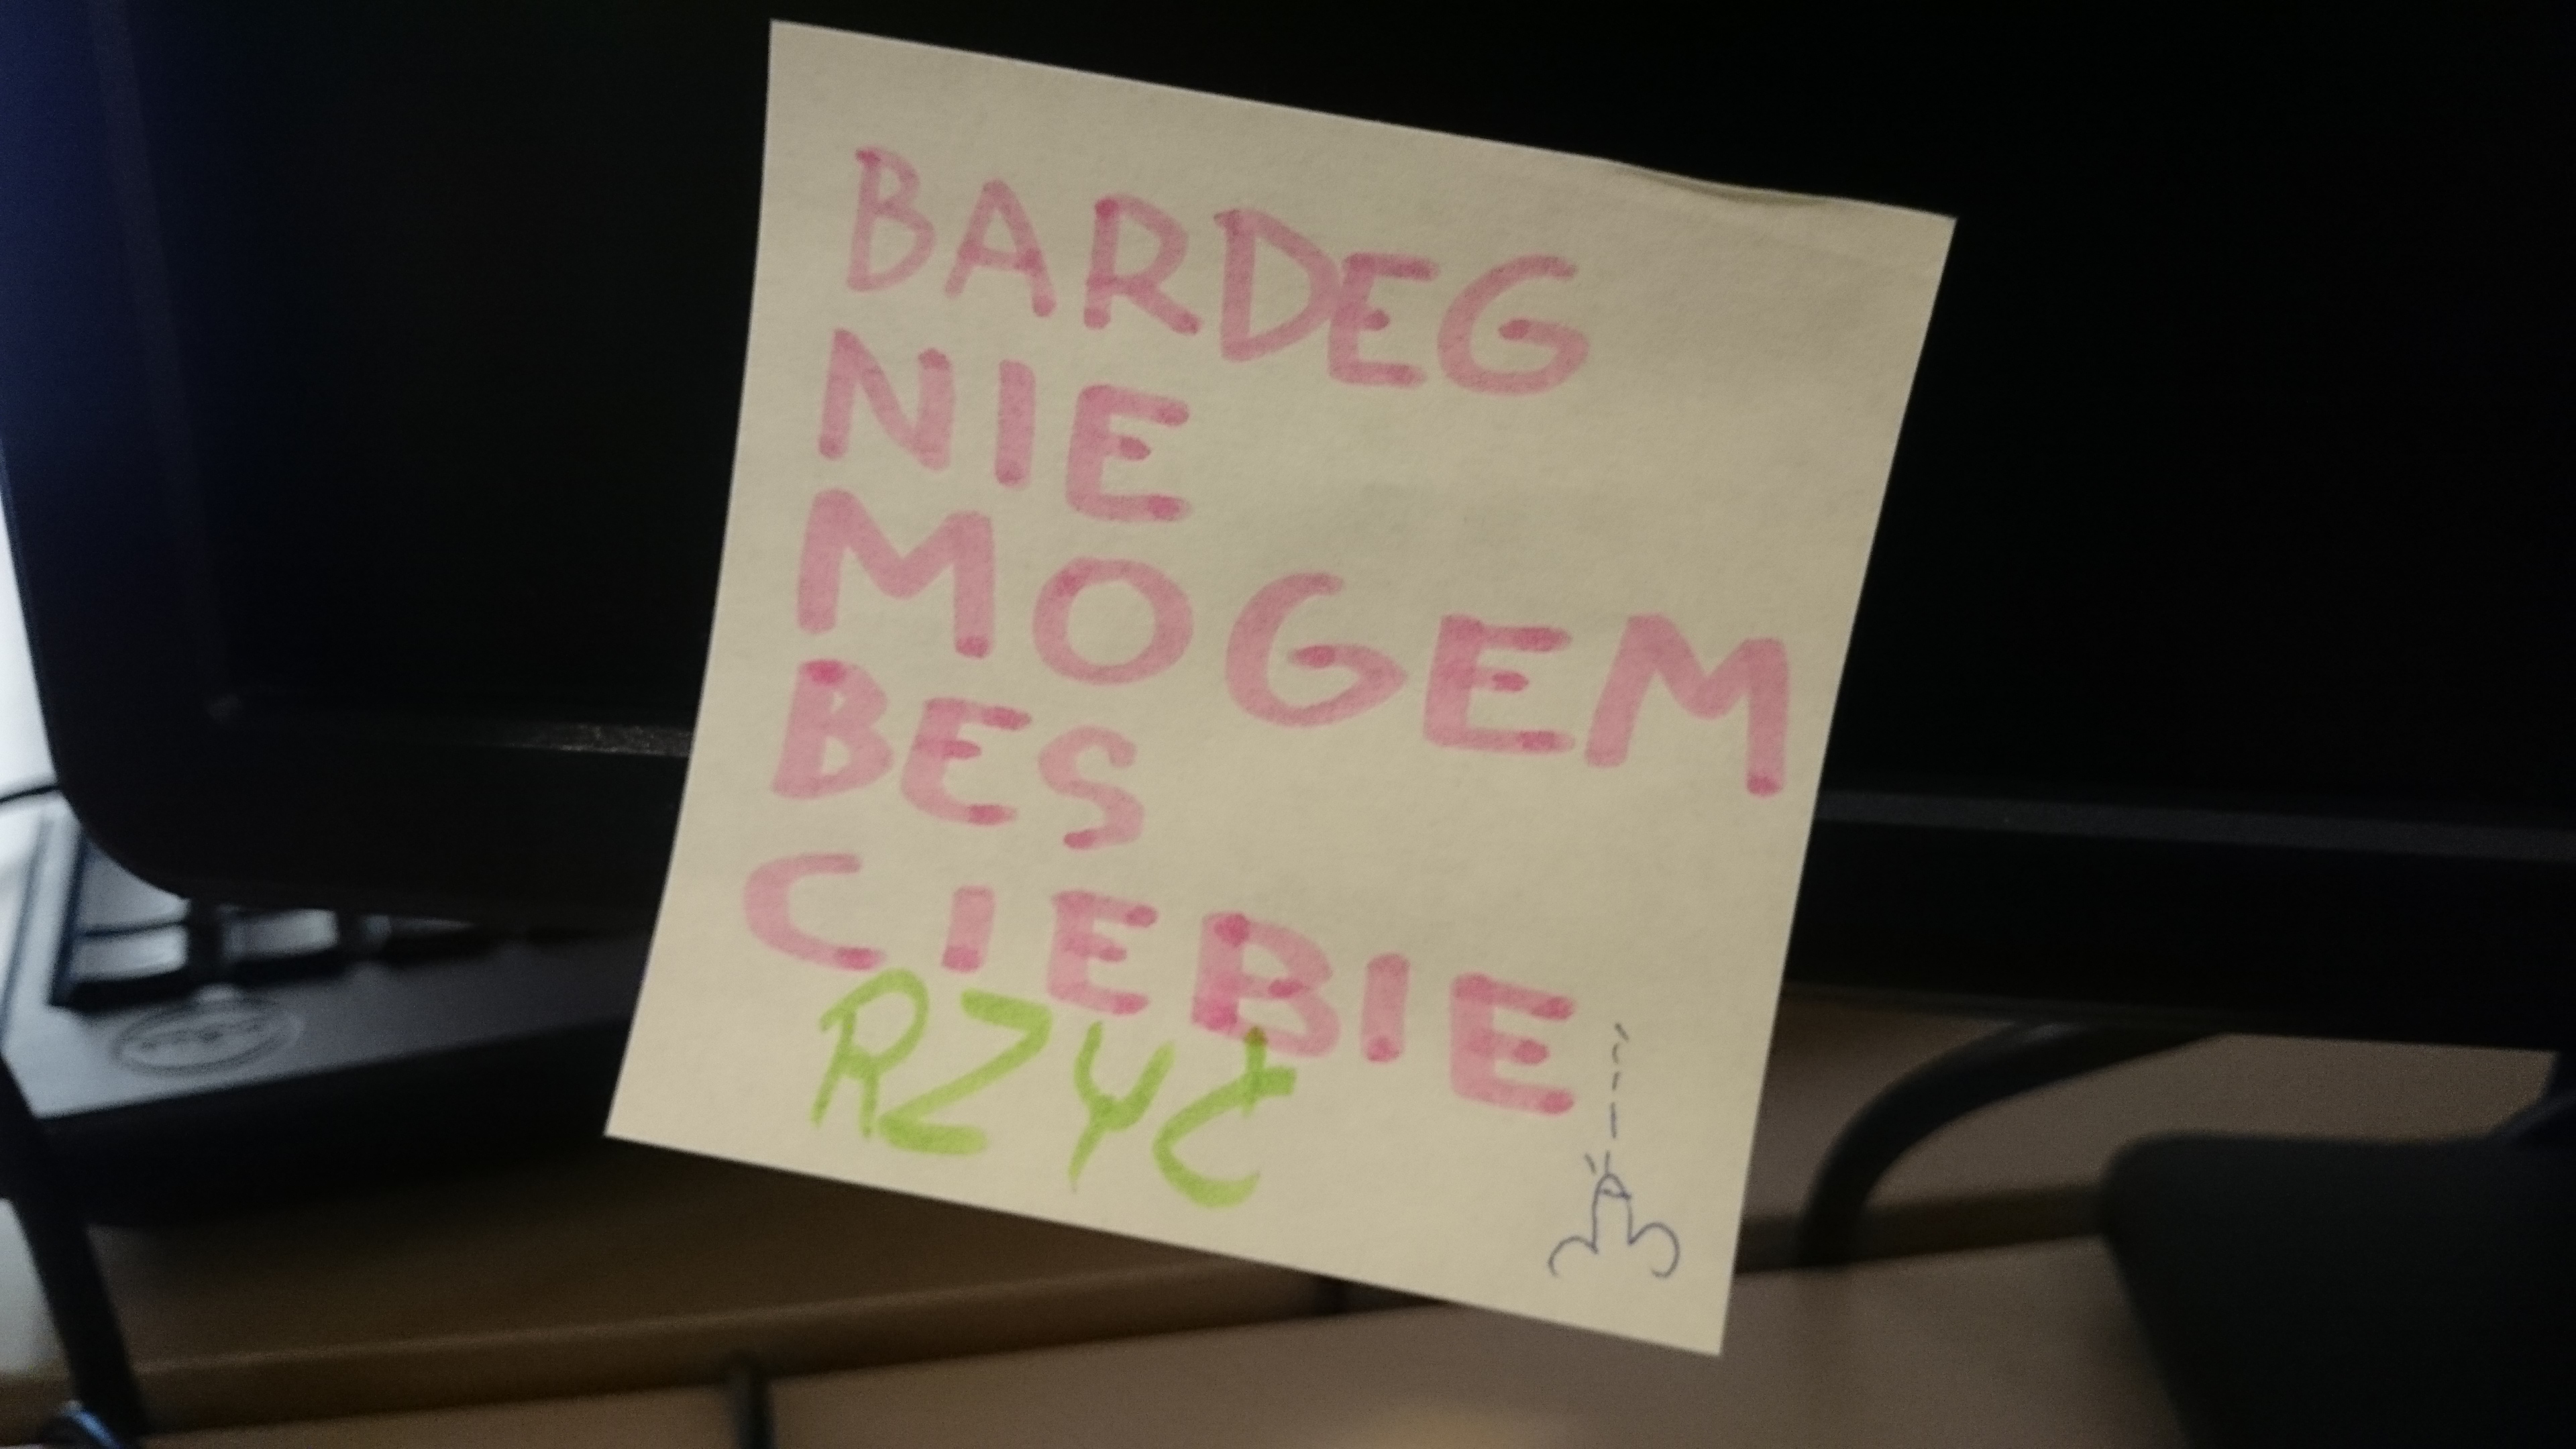 BARDEG
NIE
MOGEM
BES
CIEBIE
RZYĆ